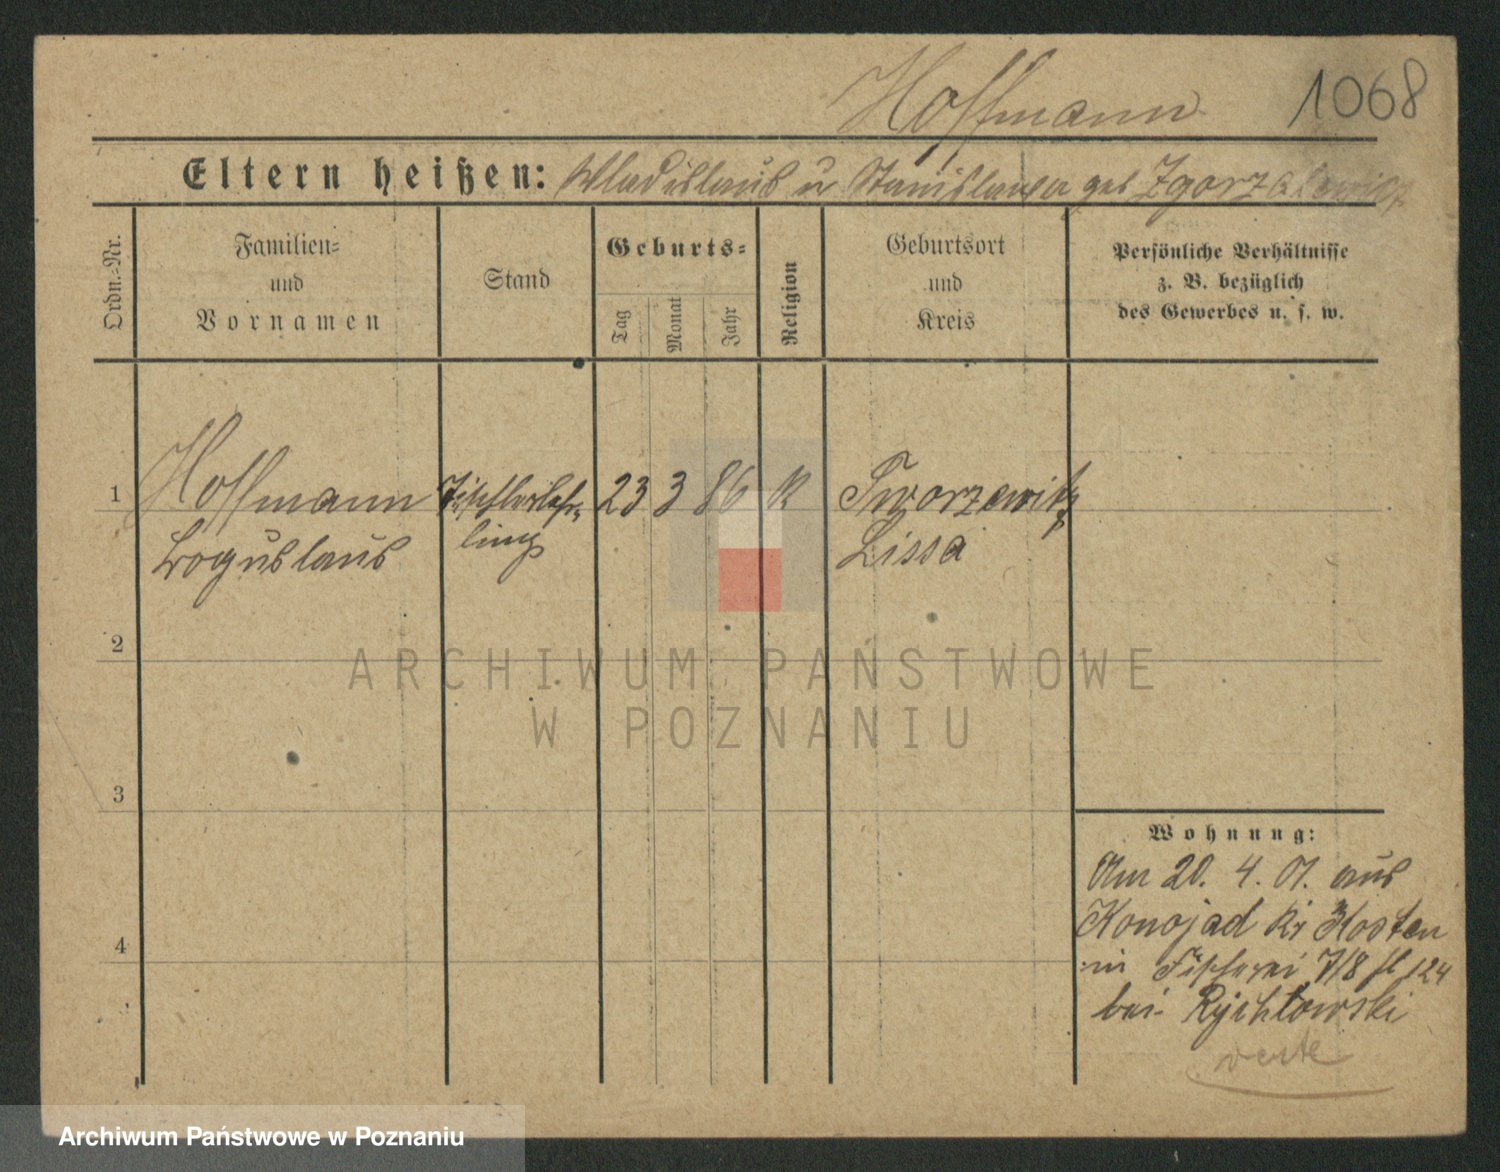 Hoffmann
1068
Eltern heißen: Wladislaus u Stanislawa geb Zgorzalewicz
Ordn.-Nr.
Familien-
und
Vornamen
Stand
Geburts-
Tag
Monat
Jahr
Religion
Geburtsort
und
Kreis
Persönliche Verhältnisse
z. B. bezüglich
des Gewerbes u. s. w.
1 Hoffmann Tischlerlehr- 23 3 86 K Tworzewitz
Boguslaus ling Lissa
2
ARCHIWUM PAŃSTWOWE
W POZNANIU
3
Wohnung:
Am 20. 4. 01. aus
Konojad Kr Kosten
4
in Fischerei 7/8 124
bei Rychlowski
verte
Archiwum Państwowe w Poznaniu